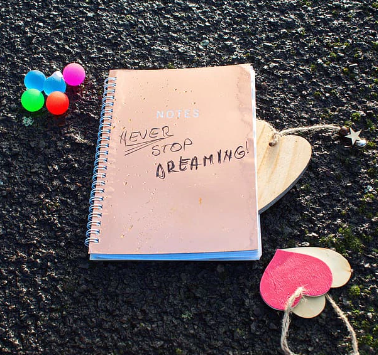 NOTES
NEVER
STOP
DREAMING!